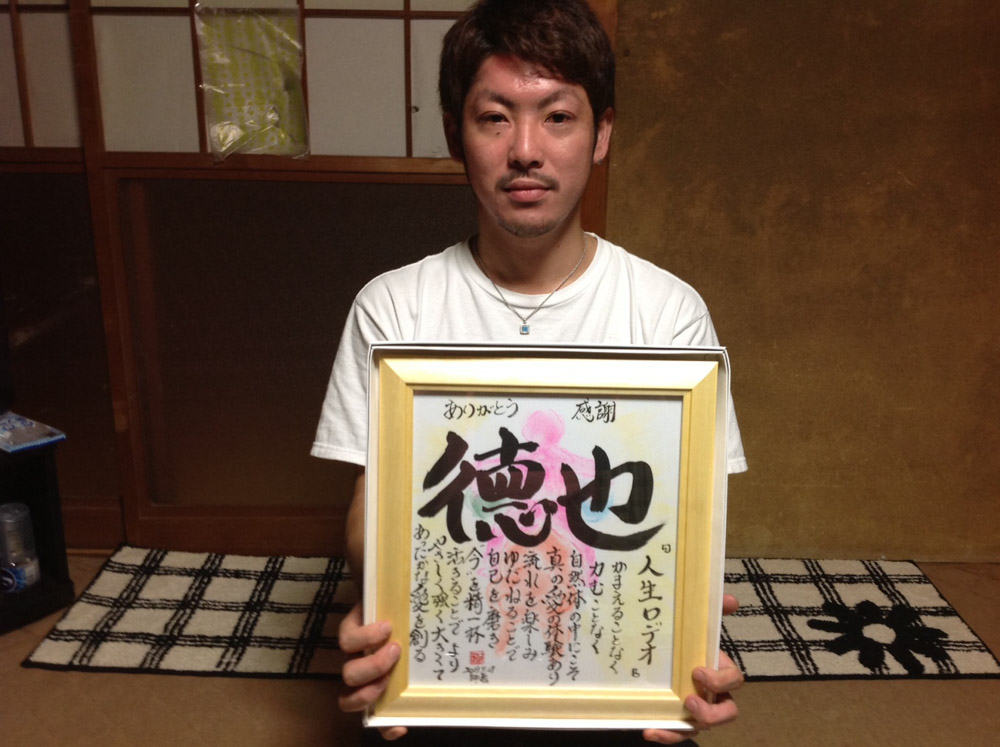 ありがとう
感謝
徳也
人生ロデオ
かまえることなく
力むことなく
自然体の中にこそ
真の愛の体験あり
流れを楽しみ
ゆだねることで
自己を磨き
今を精一杯
活きることでより
やさしく強く大きくて
あったかな愛を創る